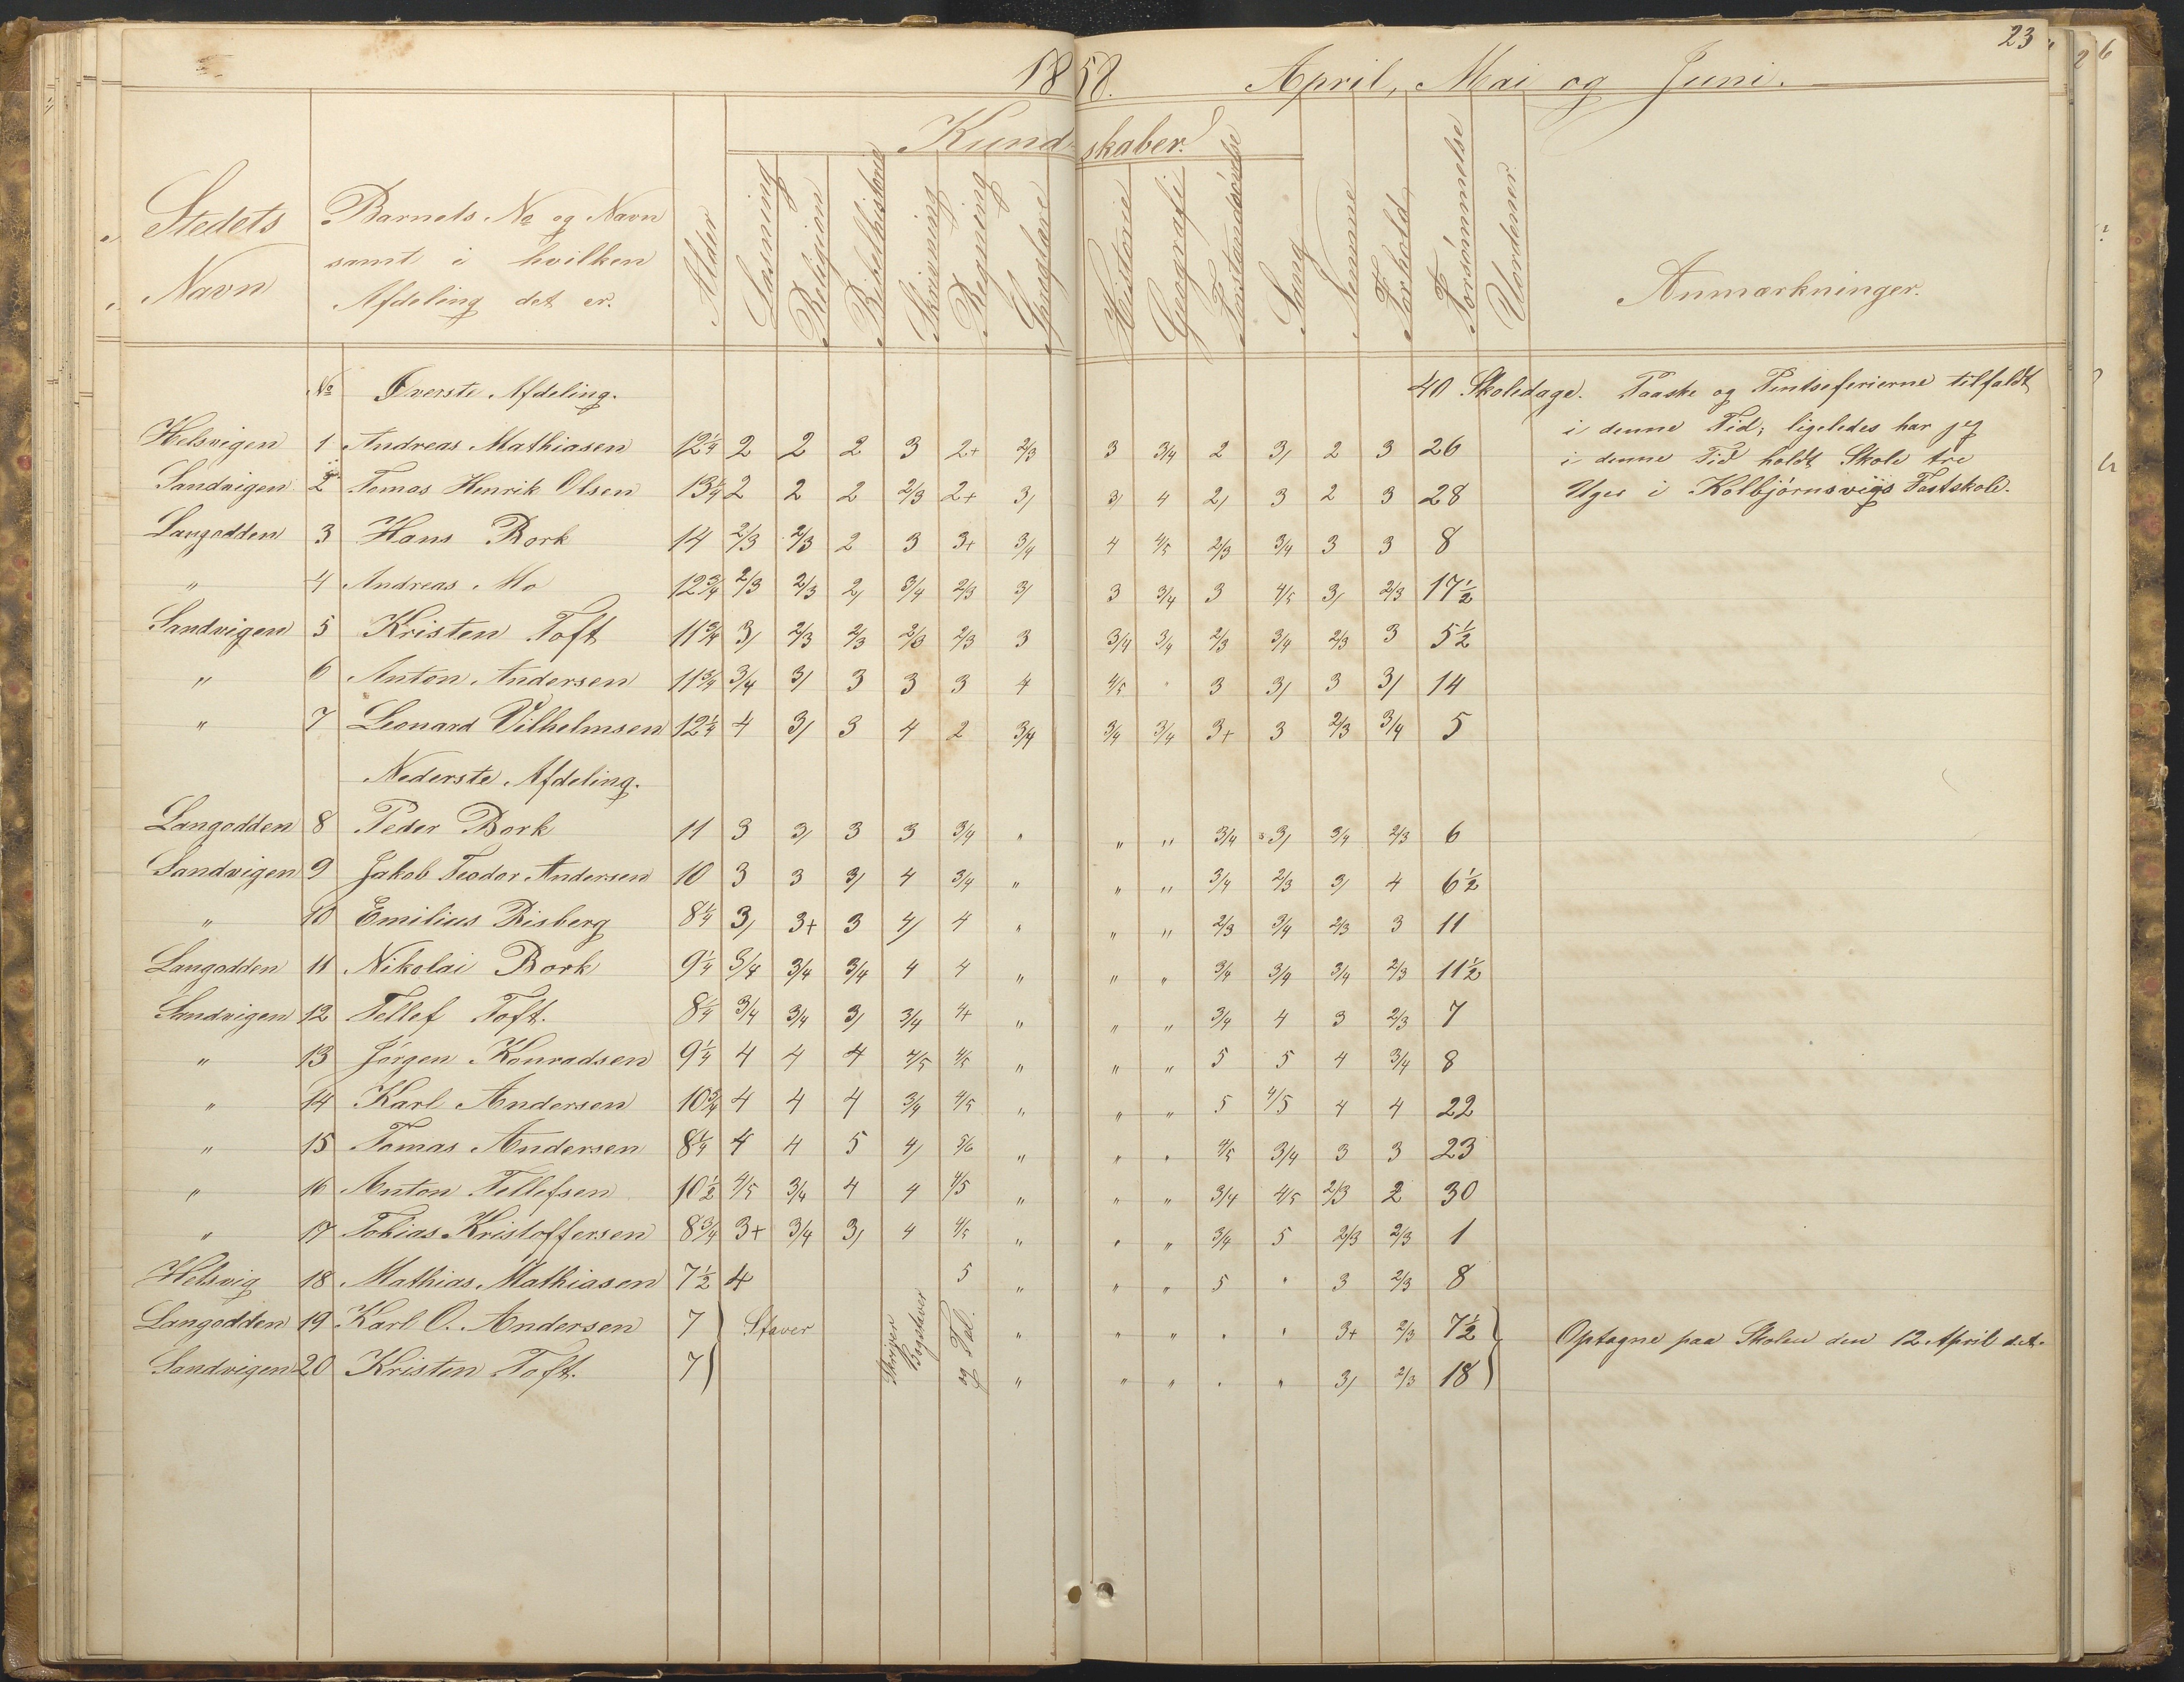 23
1858. April, Mai og Juni.
Kundskaber.
Stedets Navn
Barnets No og Navn
samt i hvilken
Afdeling det er.
Alder
Læsning
Religion
Bibelhistorie
Skrivning
Regning
Sproglære
Historie
Geografi
Forstandsøvelse
Sang
Nemme
Forhold
Forsømmelse
Uordener
Anmærkninger.
No Øverste Afdeling. 40 Skoledage. Paaske og Pintseferierne tilfaldt
i denne Tid; ligeledes har jeg
i denne Tid holdt Skole tre
Uger i Kolbjørnsvigs Fastskole.
Helsvigen 1 Andreas Mathiasen 12 1/4 2 2 2 3 2+ 2/3 3 3/4 2 3/ 2 3 26
Sandvigen 2 Tomas Henrik Olsen 13 1/4 2 2 2 2/3 2+ 3/ 3/ 4 2/ 3 2 3 28
Langodden 3 Hans Bork 14 2/3 2/3 2 3 3+ 3/4 4 4/5 2/3 3/4 3 3 8
" 4 Andreas Mo 12 3/4 2/3 2/3 2/ 3/4 2/3 3/ 3 3/4 3 4/5 3/ 2/3 17 1/2
Sandvigen 5 Kristen Toft 11 3/4 3/ 2/3 2/3 2/3 2/3 3 3/4 3/4 2/3 3/4 2/3 3 5 1/2
" 6 Anton Andersen 11 3/4 3/4 3/ 3 3 3 4 4/5 " 3 3/ 3 3/ 14
" 7 Leonard Vilhelmsen 12 1/4 4 3/ 3 4 2 3/4 3/4 3/4 3+ 3 2/3 3/4 5
Nederste Afdeling.
Langodden 8 Peder Bork 11 3 3/ 3 3 3/4 " " " 3/4 3/ 3/4 2/3 6
Sandvigen 9 Jakob Teodor Andersen 10 3 3 3/ 4 3/4 " " " 3/4 2/3 3/ 4 6 1/2
" 10 Emilius Risberg 8 1/4 3/ 3+ 3 4/ 4 " " " 2/3 3/4 2/3 3 11
Langodden 11 Nikolai Bork 9 1/4 3/4 3/4 3/4 4 4 " " " 3/4 3/4 3/4 2/3 11 1/2
Sandvigen 12 Tellef Toft. 8 1/4 3/4 3/4 3/ 3/4 4+ " " " 3/4 4 3 2/3 7
" 13 Jörgen Konradsen 9 1/4 4 4 4 4/5 4/5 " " " 5 5 4 3/4 8
" 14 Karl Andersen 10 3/4 4 4 4 3/4 4/5 " " " 5 4/5 4 4 22
" 15 Tomas Andersen 8 1/4 4 4 5 4/ 5/6 " " " 4/5 3/4 3 3 23
" 16 Anton Tellefsen 10 1/2 4/5 3/4 4 4 4/5 " " " 3/4 4/5 2/3 2 30
" 17 Tobias Kristoffersen 8 3/4 3+ 3/4 3/ 4 4/5 " " " 3/4 5 2/3 2/3 1
Helsvig 18 Mathias Mathiasen 7 1/2 4 5 " " " 5 " 3 2/3 8
Langodden 19 Karl O. Andersen 7 Staver Skriver Bogstaver og Tal. " " " " " 3+ 2/3 7 1/2 Optagne paa Skolen den 12 April d.A.
Sandvigen 20 Kristen Toft. 7 " " " " " 3/ 2/3 18